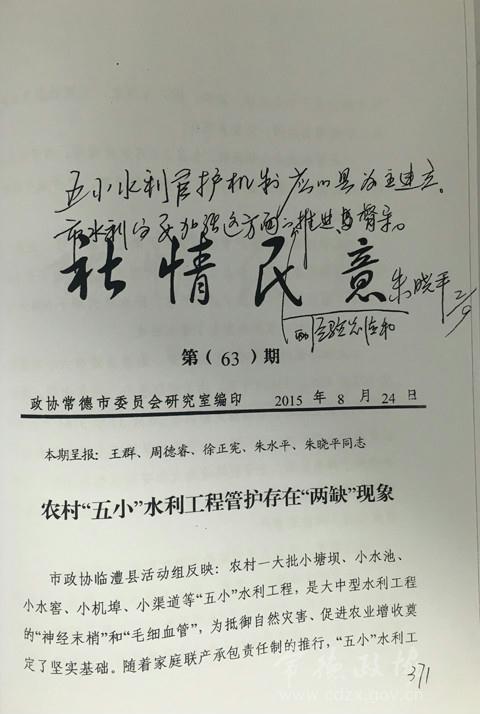 五小水利管护机制应以县为主建立。
市水利局要加强这方面的推进与督导。
社情民意
朱晓平
第（63）期
政协常德市委员会研究室编印 2015 年 8 月 24 日
本期呈报：王群、周德睿、徐正宪、朱水平、朱晓平同志
农村“五小”水利工程管护存在“两缺”现象
市政协临澧县活动组反映：农村一大批小塘坝、小水池、
小水窖、小机埠、小渠道等“五小”水利工程，是大中型水利工程
的“神经末梢”和“毛细血管”，为抵御自然灾害、促进农业增收奠
定了坚实基础。随着家庭联产承包责任制的推行，“五小”水利工
371
常德政协
www.cdzx.gov.cn